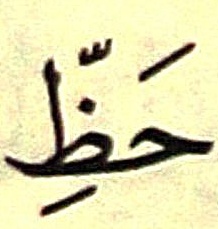 حَظِّ